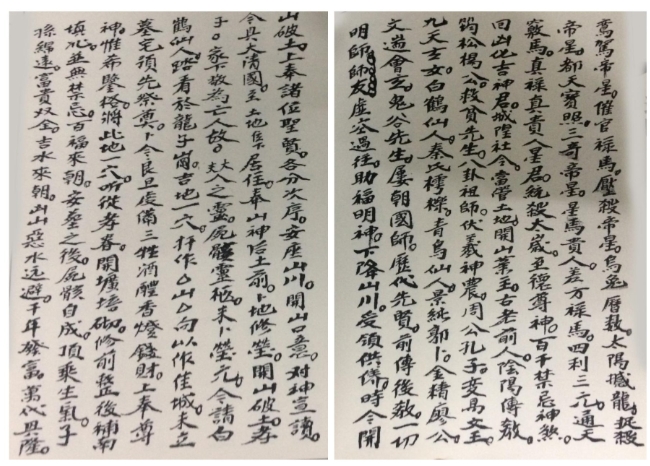 鸞駕帝星。催官禄馬。壓殺帝星。烏兔曆数。太陽撼龍。捉殺
帝星。都天寶照三奇帝星。星馬貴人差方禄馬。四利三元。通天
竅馬。真禄真貴人星君。統殺太歲至德尊神。百千禁忌神煞。
回凶化吉神君。城隍社令當管土地開山業主。古老前人。陰陽傳教。
筠松楊公。救貧先生。八卦祖師伏羲神農。周公孔子。文王。
九天玄女白鶴仙人。秦氏樗櫟。青烏仙人。景純郭卜。金精廖公。
文遄會玄。鬼谷先生。屡朝國師。歷代先賢。前傳後教一切
明師師友虛空過往助福明神。下降山川。受領供儀。時今開
山破土。上奉諸位聖賢。各分次序。安座山川。開山口意。对神宣讀
今具大清國 土地 居住。奉山神后土前。卜地修塋。開山破土。孝
子。家下故為亡人故。之靈。屍骸靈柩。未卜塋 今請白
鶴仙人踏看於龍子崗吉地一穴。扞作△山△向以作佳城。未立
墓宅預先祭奠。卜今良旦。虔備三牲酒醴香燈錢財。上奉尊
神。惟希鑒格。將此地一穴。听從孝眷開壙塔砌。修前整後補南
填北並無禁忌。百福來朝。安塟之後。屍骸自成。項乘生氣。子
孫綿遠。富貴双全。吉水來朝。凶山惡水远避。千年發富萬代興隆。